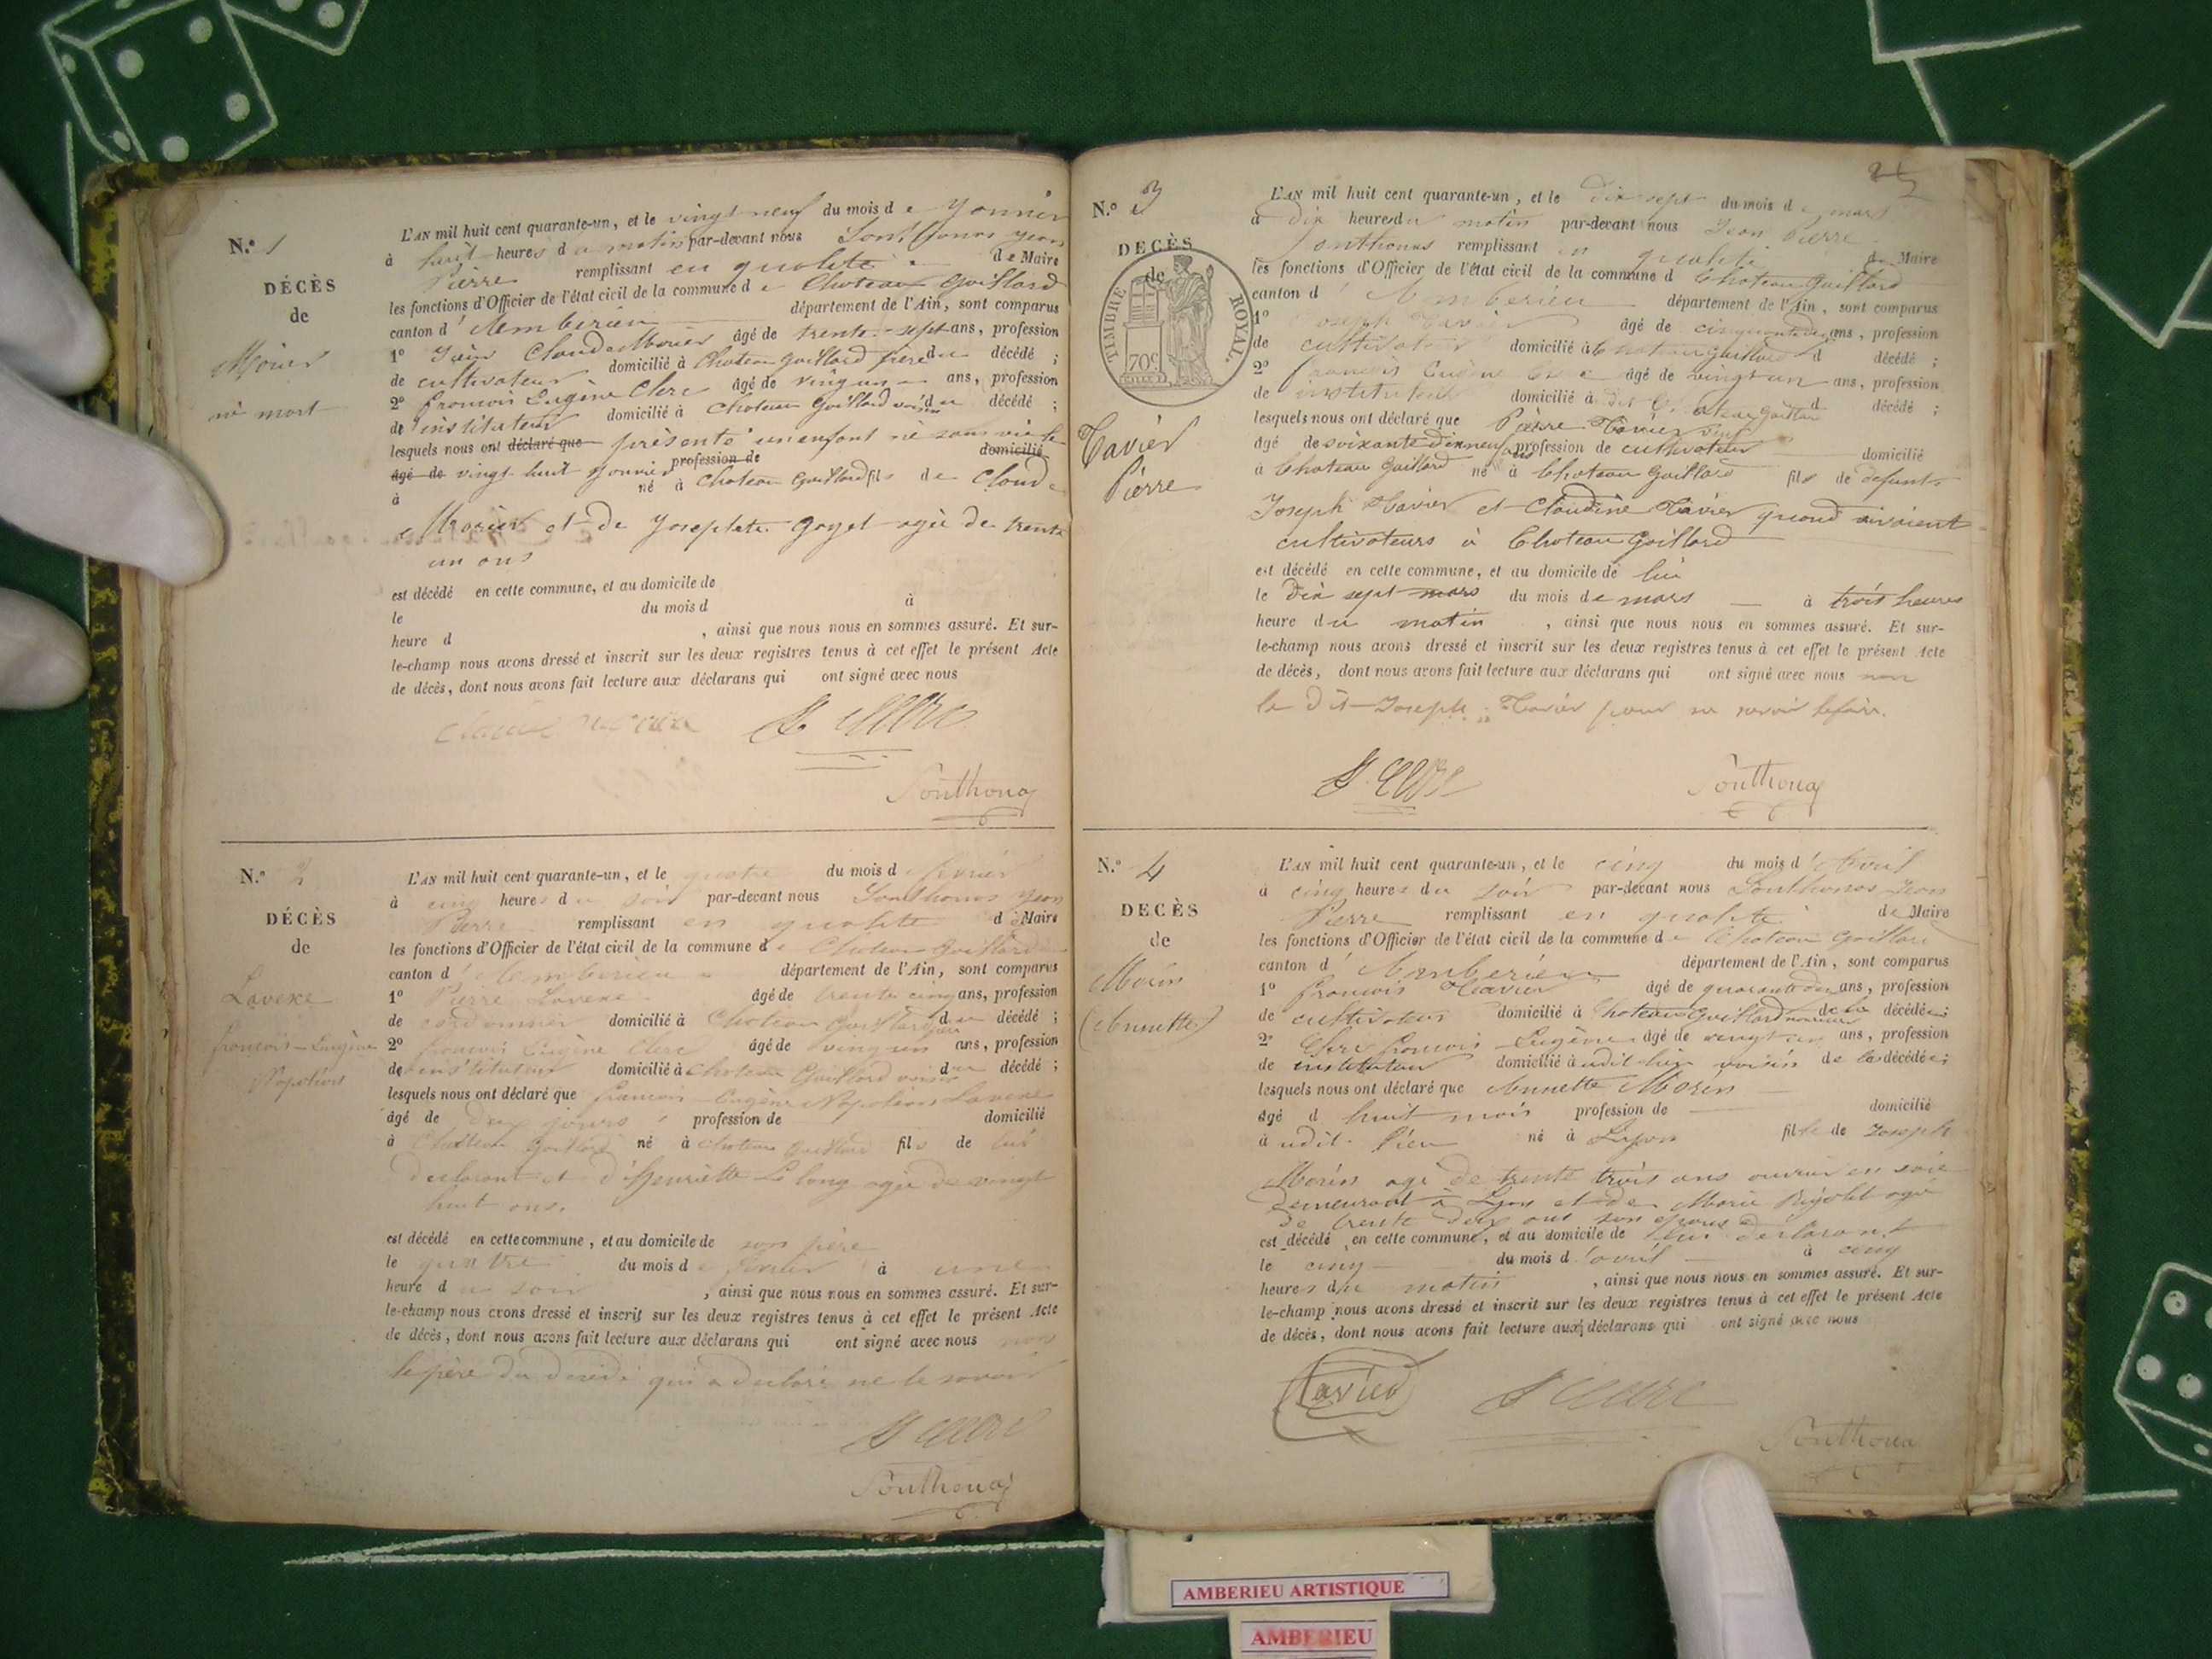 N.° 1
DÉCÈS
de
né mort
L'AN mil huit cent quarante-un, et le vingt neuf du mois de
à huit heures du matin par-devant nous
Pierre remplissant en qualité de Maire
les fonctions d'Officier de l'état civil de la commune de Chateau Gaillard
canton d'Amberieu département de l'Ain, sont comparus
1° Claude âgé de trente-sept ans, profession
de cultivateur domicilié à Chateau Gaillard frère du décédé ;
2° francois Eugène Clerc âgé de vingt un ans, profession
de instituteur domicilié à Chateau Gaillard voisin du décédé ;
lesquels nous ont déclaré que présenté un enfant né sans vie le
âgé de vingt huit profession de domicilié
à né à Chateau Gaillard fils de Claude
et de Goyet agée de trente
un ans
est décédé en cette commune, et au domicile de
le du mois d à
heure d , ainsi que nous nous en sommes assuré. Et sur-
le-champ nous avons dressé et inscrit sur les deux registres tenus à cet effet le présent Acte
de décès, dont nous avons fait lecture aux déclarans qui ont signé avec nous
Ponthoud
N.° 2
DÉCÈS
de
Lavexe
francois-Eugène
Napoléon
L'AN mil huit cent quarante-un, et le quatre du mois de fevrier
à cinq heures du soir par-devant nous Ponthonos Jean
Pierre remplissant en qualité de Maire
les fonctions d'Officier de l'état civil de la commune de Chateau Gaillard
canton d'Amberieu département de l'Ain, sont comparus
1° Pierre Lavexe âgé de trente cinq ans, profession
de cordonnier domicilié à Chateau Gaillard père du décédé ;
2° francois Eugène Clerc âgé de vingt un ans, profession
de instituteur domicilié à Chateau Gaillard voisin du décédé ;
lesquels nous ont déclaré que francois-Eugène Napoleon Lavexe
âgé de deux jours profession de domicilié
à Chateau Gaillard né à Chateau Gaillard fils de lui
declarant et d'henriette Lelong agée de vingt
huit ans.
est décédé en cette commune, et au domicile de son père
le quatre du mois de fevrier à une
heure du soir , ainsi que nous nous en sommes assuré. Et sur-
le-champ nous avons dressé et inscrit sur les deux registres tenus à cet effet le présent Acte
de décès, dont nous avons fait lecture aux déclarans qui ont signé avec nous non
le père du décédé qui a declaré ne le savoir
Ponthoud
N.° 3
DÉCÈS
de
TIMBRE ROYAL.
70c
Tavier
Pierre
L'AN mil huit cent quarante-un, et le dix sept du mois de mars
à dix heures du matin par-devant nous Jean Pierre
Ponthonos remplissant en qualité de Maire
les fonctions d'Officier de l'état civil de la commune d Chateau Gaillard
canton d'Amberieu département de l'Ain, sont comparus
1° Joseph Tavier âgé de ans, profession
de cultivateur domicilié à Chateau Gaillard d décédé ;
2° francois Eugène âgé de vingt un ans, profession
de instituteur domicilié à dit Chateau Gaillard d décédé ;
lesquels nous ont déclaré que Pierre Tavier veuf
âgé de soixante dixneuf ans profession de cultivateur domicilié
à Chateau Gaillard né à Chateau Gaillard fils de defunts
Joseph Tavier et Claudine Tavier quand vivaient
cultivateurs à Chateau Gaillard
est décédé en cette commune, et au domicile de lui
le dix sept mars du mois de mars à trois heures
heure du matin , ainsi que nous nous en sommes assuré. Et sur-
le-champ nous avons dressé et inscrit sur les deux registres tenus à cet effet le présent Acte
de décès, dont nous avons fait lecture aux déclarans qui ont signé avec nous non
le dit Joseph Tavier pour ne savoir le faire.
Ponthoud
N.° 4
DÉCÈS
de
Morin
(Annette)
L'AN mil huit cent quarante-un, et le cinq du mois d'Avril
à cinq heures du soir par-devant nous Ponthonos Jean
Pierre remplissant en qualité de Maire
les fonctions d'Officier de l'état civil de la commune de Chateau Gaillard
canton d'Amberieu département de l'Ain, sont comparus
1° francois Tavier âgé de quarante ans, profession
de cultivateur domicilié à Chateau Gaillard de la décédée ;
2° Clerc francois Eugène âgé de vingt un ans, profession
de instituteur domicilié à udit lieu voisin de la décédée ;
lesquels nous ont déclaré que Annette Morin
âgé d huit mois profession de domicilié
à udit lieu né à Lyon fille de Joseph
Morin agé de trente trois ans ouvrier en soie
demeurant à Lyon et de Marie agée
de trente deux ans son epouse
est décédé en cette commune, et au domicile de lui déclarant
le cinq du mois d'avril à cinq
heures du matin , ainsi que nous nous en sommes assuré. Et sur-
le-champ nous avons dressé et inscrit sur les deux registres tenus à cet effet le présent Acte
de décès, dont nous avons fait lecture aux déclarans qui ont signé avec nous
Tavier
Ponthoud
AMBERIEU ARTISTIQUE
AMBERIEU